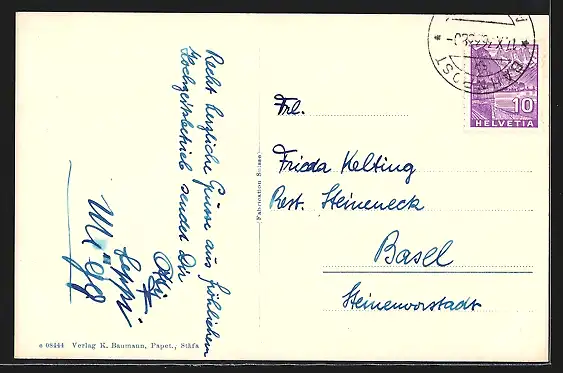 Recht herzliche Grüsse aus fröhlichem
Hochzeitsbetrieb sendet Dir
Seppi
Fabrication Suisse
BAHNPOST
10
HELVETIA
Frl.
Frieda Kelting
Rest. Steineneck
Basel
Steinenvorstadt
e 08444 Verlag K. Baumann, Papet., Stäfa